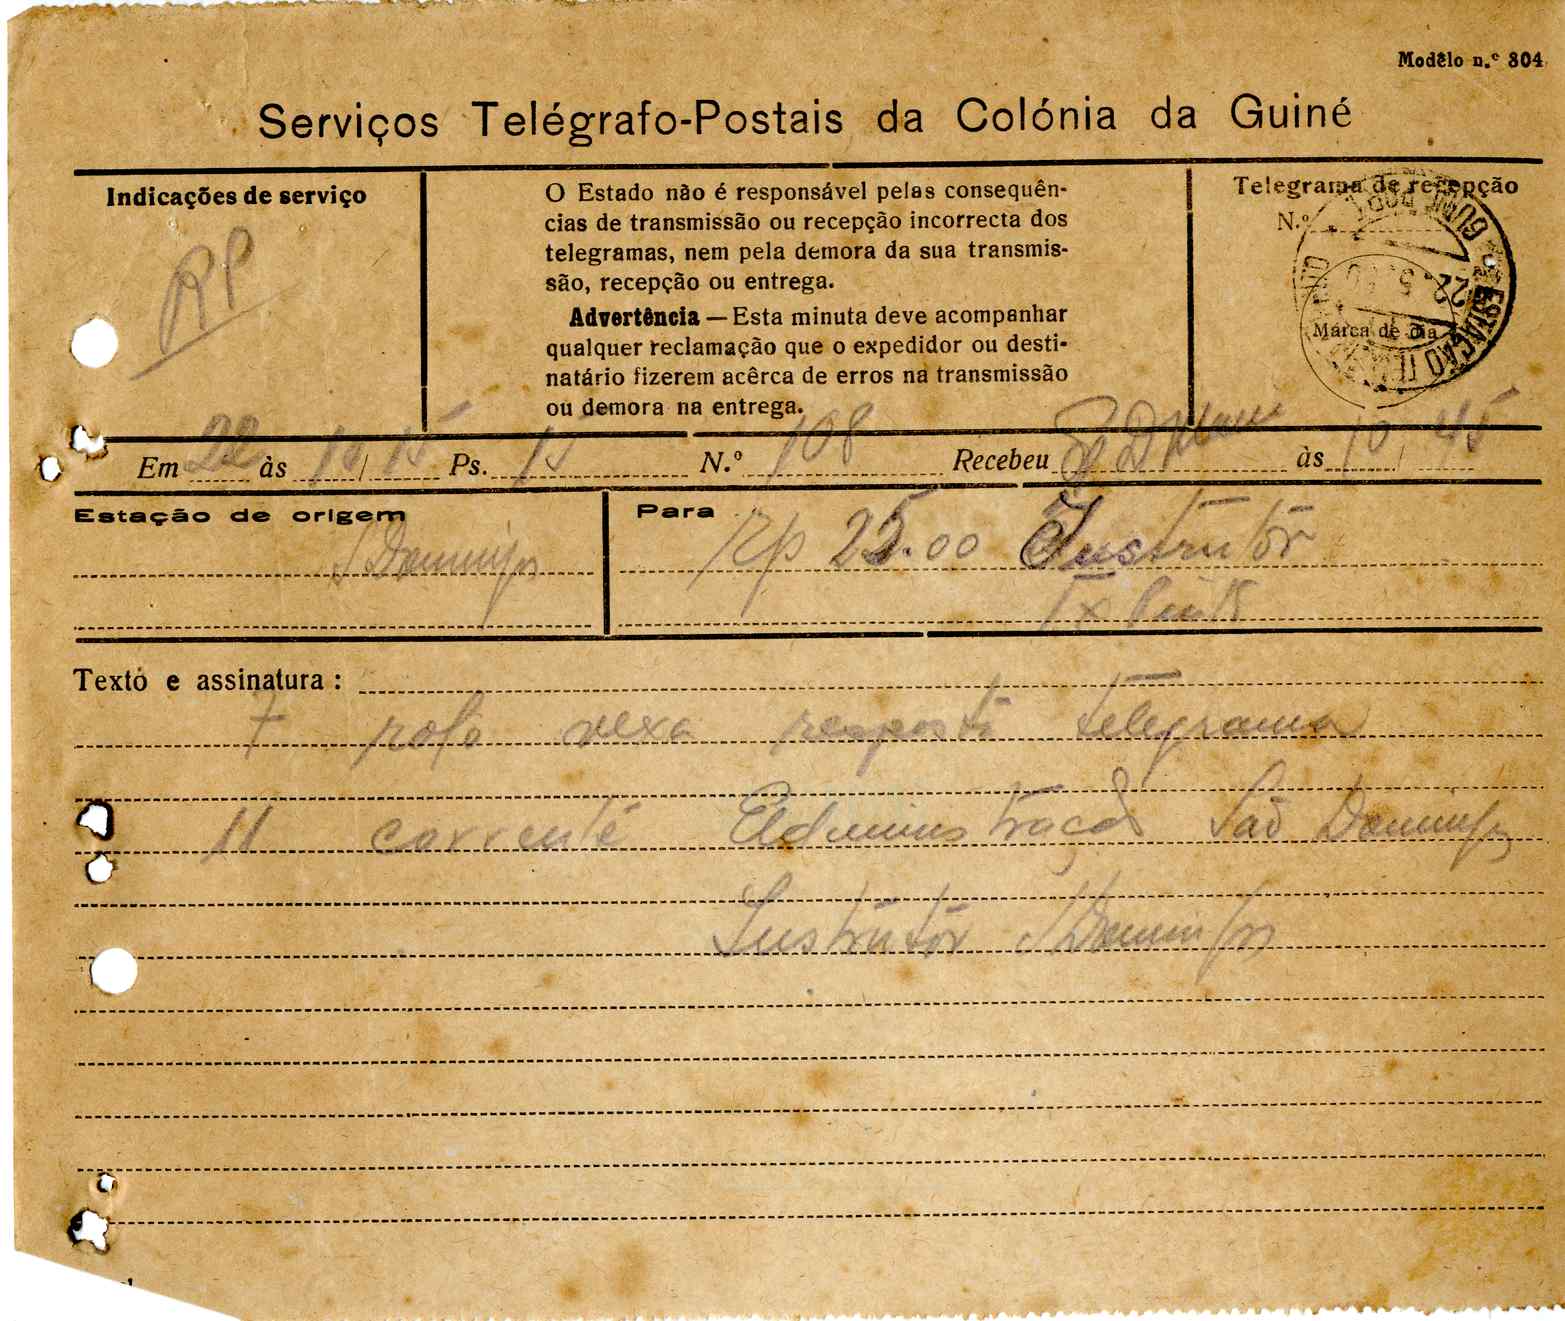 Modêlo n.º 304
Serviços Telégrafo-Postais da Colónia da Guiné
Indicações de serviço
RP
O Estado não é responsável pelas consequên-
cias de transmissão ou recepção incorrecta dos
telegramas, nem pela demora da sua transmis-
são, recepção ou entrega.
Advertência — Esta minuta deve acompanhar
qualquer reclamação que o expedidor ou desti-
natário fizerem acêrca de erros na transmissão
ou demora na entrega.
Telegrama de recepção
N.º
Marca de dia
Em 22 às 10/15 Ps. 15 N.º 108 Recebeu às 10/45
Estação de origem
S Domingos
Para
Rp 25.00 Instrutôr
7 rofo vexa resposta telegrama
11 corrente Administração São Domingos
Instrutôr S Domingos